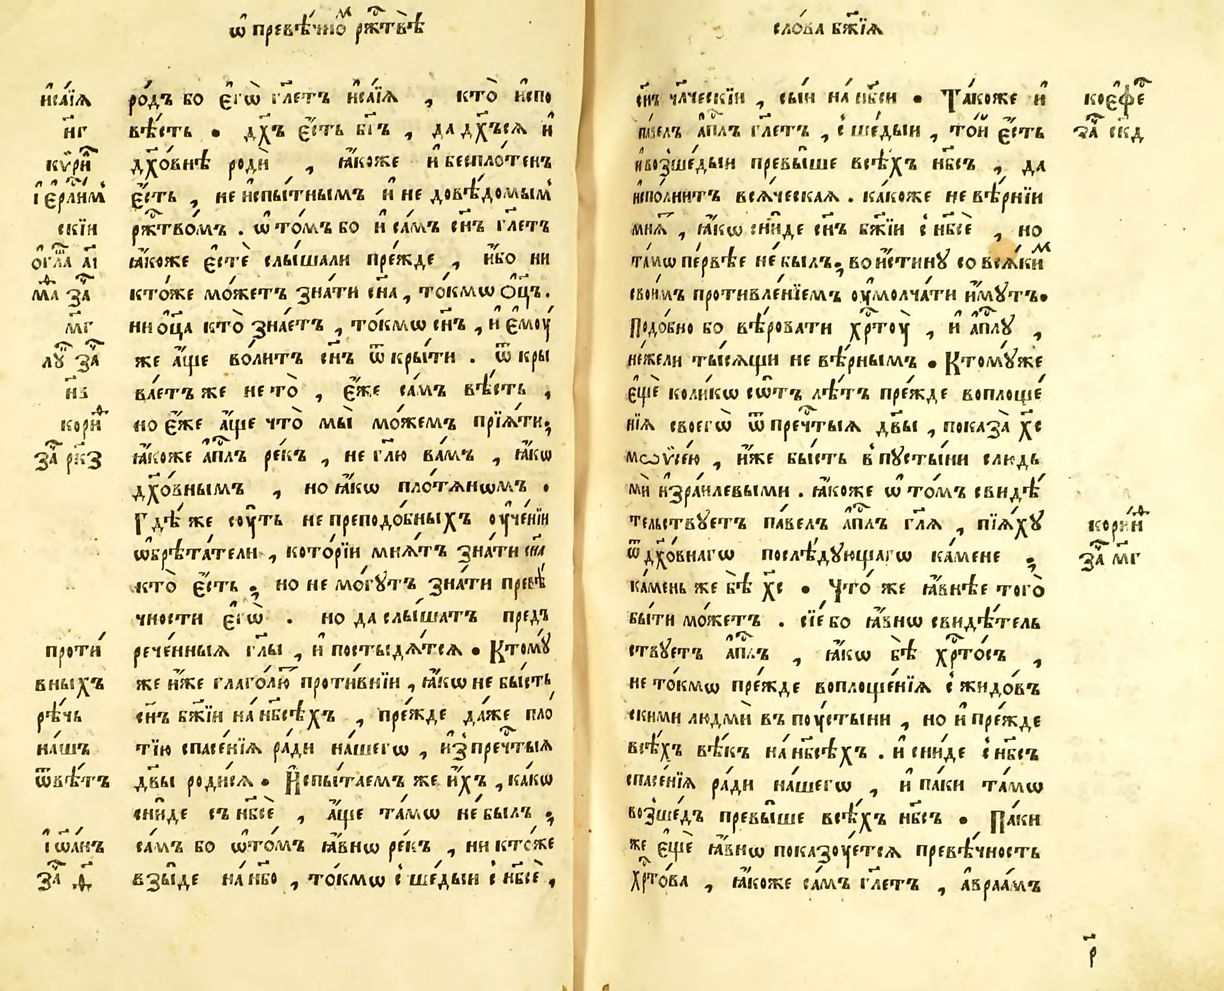 ѡ҆ превѣ́чноⷨ рж҃твѣ̀
и҆са́їѧ
н҃г
кѵ́риⷧ
і҆ерⷭ҇лим
скїи
ѡ҆гл҃а а҃і
маⷴ за⃰
м҃г
лꙋ⃰ за⃰
н҃в
кориⷴ
за⃰ рк҃з
проти́
вныхъ
рѣ́чь
на́шъ
ѿвѣ́тъ
і҆ѡа́нъ
за⃰ ѳ҃
ро́дъ бо є҆гѡ̀ гл҃етъ и҆са́їѧ , кто̀ и҆спо
вѣ́сть . дх҃ъ є҆́сть бг҃ъ , да дх҃ъсѧ и҆
дх҃о́внѣ роди́ , ꙗ҆́коже и҆ бесплотенъ
є҆́сть , не и҆спы́тнымъ и҆ не довѣ́домымъ
рж҃тво́мъ . ѡ҆ то́мъ бо и҆ са́мъ сн҃ъ гл҃етъ
ꙗ҆́коже є҆стѐ слы́шали пре́жде , и҆́бо ни
кто́же мо́жетъ зна́ти сн҃а , то́кмѡ ѻ҆ц҃ъ.
ни ѻ҆ц҃а кто̀ зна́етъ , то́кмѡ сн҃ъ , и҆ є҆моу́
же а҆́ще во́литъ сн҃ъ ѿкры́ти . ѿкры
ва́етъ же не то̀ , є҆́же са́мъ вѣ́сть ,
но є҆́же а҆́ще что̀ мы̀ мо́жемъ прїѧ́ти;
ꙗ҆́коже а҆пⷭ҇лъ ре́къ , не гл҃ю ва́мъ , ꙗ҆́кѡ
дх҃о́внымъ , но ꙗ҆́кѡ плотѧ́нѡмъ .
Гдѣ́ же соу́ть не преподо́бныхъ оу҆че́нїи
ѡ҆брѣта́тели , кото́рїи мнѧ́тъ зна́ти сн҃а
кто̀ є҆́сть ; но не мо́гутъ зна́ти превѣ́
чности є҆гѡ̀ . но да слы́шатъ предъ
рече́нныѧ гл҃ы , и҆ постыдѧ́тсѧ . Ктомꙋ́
же и҆̀же глаго́лю проти́внїи , ꙗ҆́кѡ не бы́сть
сн҃ъ бж҃їи на нб҃сѣхъ , пре́жде да́же пло́
тїю спасе́нїѧ ра́ди на́шегѡ , и҆з̾ прⷱ҇тыѧ
дв҃ы роди́сѧ . И҆спы́таемъ же и҆́хъ , ка́кѡ
сни́де съ нб҃сѐ , а҆́ще та́мѡ не́ былъ ;
са́мъ бо ѡ҆ то́мъ ꙗ҆́внѡ ре́къ , никто́же
взы́де на́ нб҃о , то́кмѡ с̾шедыи с̾ нб҃сѐ ,
сло́ва бж҃їѧ
сн҃ъ чл҃ческїи , сыи на нб҃си . Та́коже и҆
па́велъ а҆пⷭ҇лъ гл҃етъ , с̾ше́дыи , то́й є҆́сть
и҆ воз̾ше́дыи превы́ше всѣ́хъ нб҃съ , да
и҆спо́лнитъ всѧ́ческаѧ . ка́коже не вѣ́рнїи
мнѧ́т , ꙗ҆́кѡ сни́де сн҃ъ бж҃їи с̾ нб҃сѐ , но
та́мѡ пе́рвѣе не́ былъ; вои́стину со всѧ́киⷨ
свои́мъ противле́нїемъ оу҆молча́ти и҆́мутъ.
Подо́бно бо вѣ́ровати хрⷭ҇тоу̀ , и҆ а҆пⷭ҇лу ,
не́жели ты́сѧщи не вѣ́рнымъ . Ктому́же
є҆щѐ коли́кѡ со́тъ лѣ́тъ пре́жде воплоще́
нїѧ своегѡ̀ ѿ пречⷭ҇тыѧ дв҃ы , показа̀ хс҃
мѡѷсе́ю , и҆́же бы́сть в̾ пусты́ни с людь
мѝ и҆зра́илевыми . ꙗ҆́коже ѡ҆ то́мъ свидѣ́
тельствуетъ па́велъ а҆пⷭ҇лъ гл҃ѧ , пїѧ́ху
ѿ дх҃о́внагѡ послѣ́дующагѡ ка́мене ;
ка́мень же бѣ̀ хс҃ . Что́ же ꙗ҆́внѣе того̀
бы́ти мо́жетъ . сїе́ бо ꙗ҆́внѡ свидѣ́тель
ствуетъ а҆пⷭ҇лъ , ꙗ҆́кѡ бѣ̀ хрⷭ҇то́съ ,
не то́кмѡ пре́жде воплоще́нїѧ с̾ жидо́въ
скими людмѝ въ поусты́ни , но и҆ пре́жде
всѣ́хъ вѣ́къ на нб҃сѣхъ . и҆ сни́де с̾ нб҃съ
спасе́нїѧ ра́ди на́шегѡ , и҆ па́ки та́мѡ
воз̾ше́дъ превы́ше всѣ́хъ нб҃съ . Па́ки
же є҆щѐ ꙗ҆́внѡ показо́уетсѧ превѣ́чность
хрⷭ҇то́ва , ꙗ҆́коже са́мъ гл҃етъ , а҆враа́мъ
ко є҆фе⃰
за⃰ ск҃д
кориⷴн
за⃰ м҃г
р҃